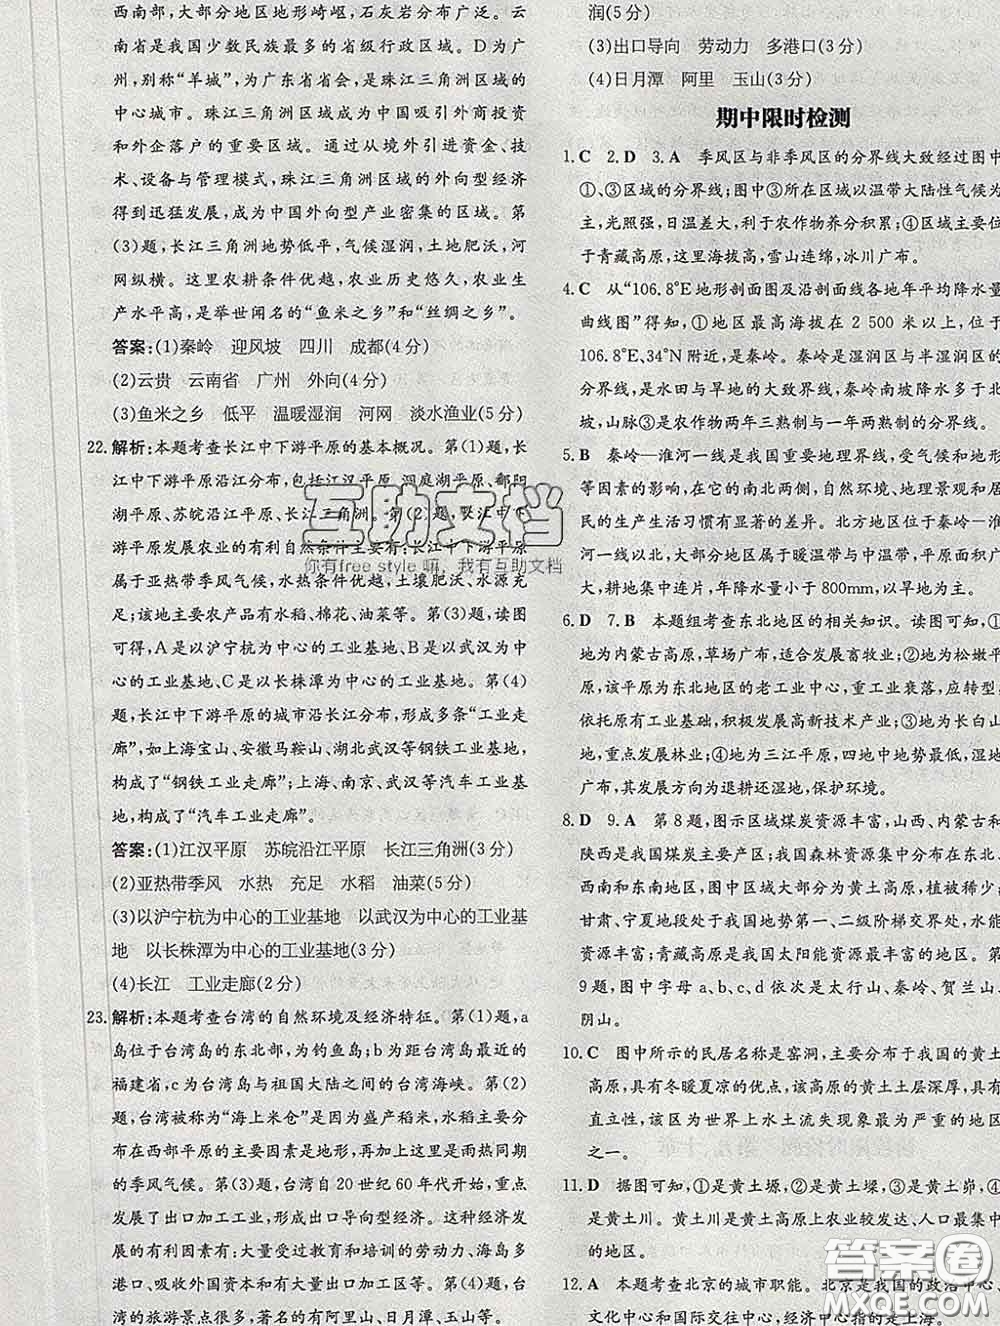 西南部,大部分地区地形崎岖,石灰岩分布广泛。云
南省是我国少数民族最多的省级行政区域。D为广
州,别称“羊城”,为广东省省会,是珠江三角洲区域的
中心城市。珠江三角洲区域成为中国吸引外商投资
和外企落户的重要区域。通过从境外引进资金、技
术、设备与管理模式,珠江三角洲区域的外向型经济
得到迅猛发展,成为中国外向型产业密集的区域。第
(3)题,长江三角洲地势低平,气候湿润,土地肥沃,河
网纵横。这里农耕条件优越,农业历史悠久,农业生
产水平高,是举世闻名的“鱼米之乡”和“丝绸之乡”。
答案:(1)秦岭 迎风坡 四川 成都(4分)
(2)云贵 云南省 广州 外向(4分)
(3)鱼米之乡 低平 温暖湿润 河网 淡水渔业(5分)
22. 解析:本题考查长江中下游平原的基本概况。第(1)题,长
江中下游平原沿江分布,包括江汉平原、洞庭湖平原、鄱阳
湖平原、苏皖沿江平原、长江三角洲。第(2)题,长江中下
游平原发展农业的有利自然条件主要有:长江中下游平原
属于亚热带季风气候,水热条件优越,土壤肥沃、水源充
足;该地主要农产品有水稻、棉花、油菜等。第(3)题,读图
可知,A是以沪宁杭为中心的工业基地、B是以武汉为中
心的工业基地、C是以长株潭为中心的工业基地。第(4)
题,长江中下游平原的城市沿长江分布,形成多条“工业走
廊”,如上海宝山、安徽马鞍山、湖北武汉等钢铁工业基地,
构成了“钢铁工业走廊”;上海、南京、武汉等汽车工业基
地,构成了“汽车工业走廊”。
答案:(1)江汉平原 苏皖沿江平原 长江三角洲(3分)
(2)亚热带季风 水热 充足 水稻 油菜(5分)
(3)以沪宁杭为中心的工业基地 以武汉为中心的工业基
地 以长株潭为中心的工业基地(3分)
(4)长江 工业走廊(2分)
23. 解析:本题考查台湾的自然环境及经济特征。第(1)题,a
岛位于台湾岛的东北部,为钓鱼岛;b为距台湾岛最近的
福建省,c为台湾岛与祖国大陆之间的台湾海峡。第(2)
题,台湾被称为“海上米仓”是因为盛产稻米,水稻主要分
布在西部平原的主要因素是地形,再加上这里雨热同期
的季风气候。第(3)题,台湾自20世纪60年代开始,重点
发展了出口加工工业,形成出口导向型经济。这种经济发
展的有利因素有:大量受过教育和培训的劳动力、海岛多
港口、吸收外国资本和有大量出口加工区等。第(4)题,台
湾的旅游景点很多,著名的有阿里山、日月潭、玉山等。
润(5分)
(3)出口导向 劳动力 多港口(3分)
(4)日月潭 阿里 玉山(3分)
期中限时检测
1. C 2. D 3. A 季风区与非季风区的分界线大致经过图中
①、③区域的分界线;图中③所在区域以温带大陆性气候为
主,光照强,日温差大,利于农作物养分积累;④区域主要位
于青藏高原,这里海拔高,雪山连绵,冰川广布。
4. C 从“106.8°E地形剖面图及沿剖面线各地年平均降水量
曲线图”得知,①地区最高海拔在2 500米以上,位于
106.8°E、34°N附近,是秦岭。秦岭是湿润区与半湿润区的
分界线,是水田与旱地的大致界线,秦岭南坡降水多于北
坡,山脉是农作物两年三熟制与一年两熟制的分界线。
5. B 秦岭—淮河一线是我国重要地理界线,受气候和地形
等因素的影响,在它的南北两侧,自然环境、地理景观和居
民的生产生活习惯有显著的差异。北方地区位于秦岭—淮
河一线以北,大部分地区属于暖温带与中温带,平原面积广
大,耕地集中连片,年降水量小于800mm,以旱地为主。
6. D 7. B 本题组考查东北地区的相关知识。读图可知,①
地为内蒙古高原,草场广布,适合发展畜牧业;②地为松嫩平
原,该平原为东北地区的老工业中心,重工业衰落,应转型,
依托原有工业基础,积极发展高新技术产业;③地为长白山
地,重点发展林业;④地为三江平原,四地中地势最低,湿地
广布,其发展方向为退耕还湿地,保护环境。
8. D 9. A 第8题,图示区域煤炭资源丰富,山西、内蒙古和
陕西是我国煤炭主要产区;我国森林资源集中分布在东北、
西南和东南地区,图中区域大部分为黄土高原,植被稀少;
甘肃、宁夏地段处于我国地势第一、二级阶梯交界处,水能
资源丰富;青藏高原是我国太阳能资源最丰富的地区。第
9题,图中字母a、b、c、d依次是太行山、秦岭、贺兰山、
阴山。
10. C 图中所示的民居名称是窑洞,主要分布于我国的黄土
高原,具有冬暖夏凉的优点,该高原的黄土土层深厚,具有
直立性,该区为世界上水土流失现象最为严重的地区
之一。
11. D 据图可知,①是黄土塬,②是黄土墚,③是黄土峁,④
是黄土川。黄土川是黄土高原上农业较发达、人口最集中
的地区。
12. A 本题考查北京的城市职能。北京是我国的政治中心、
文化中心和国际交往中心,经济中心指的是上海。
互助文档
你有free style 嘛,我有互助文档
答案圈
MXQE.COM